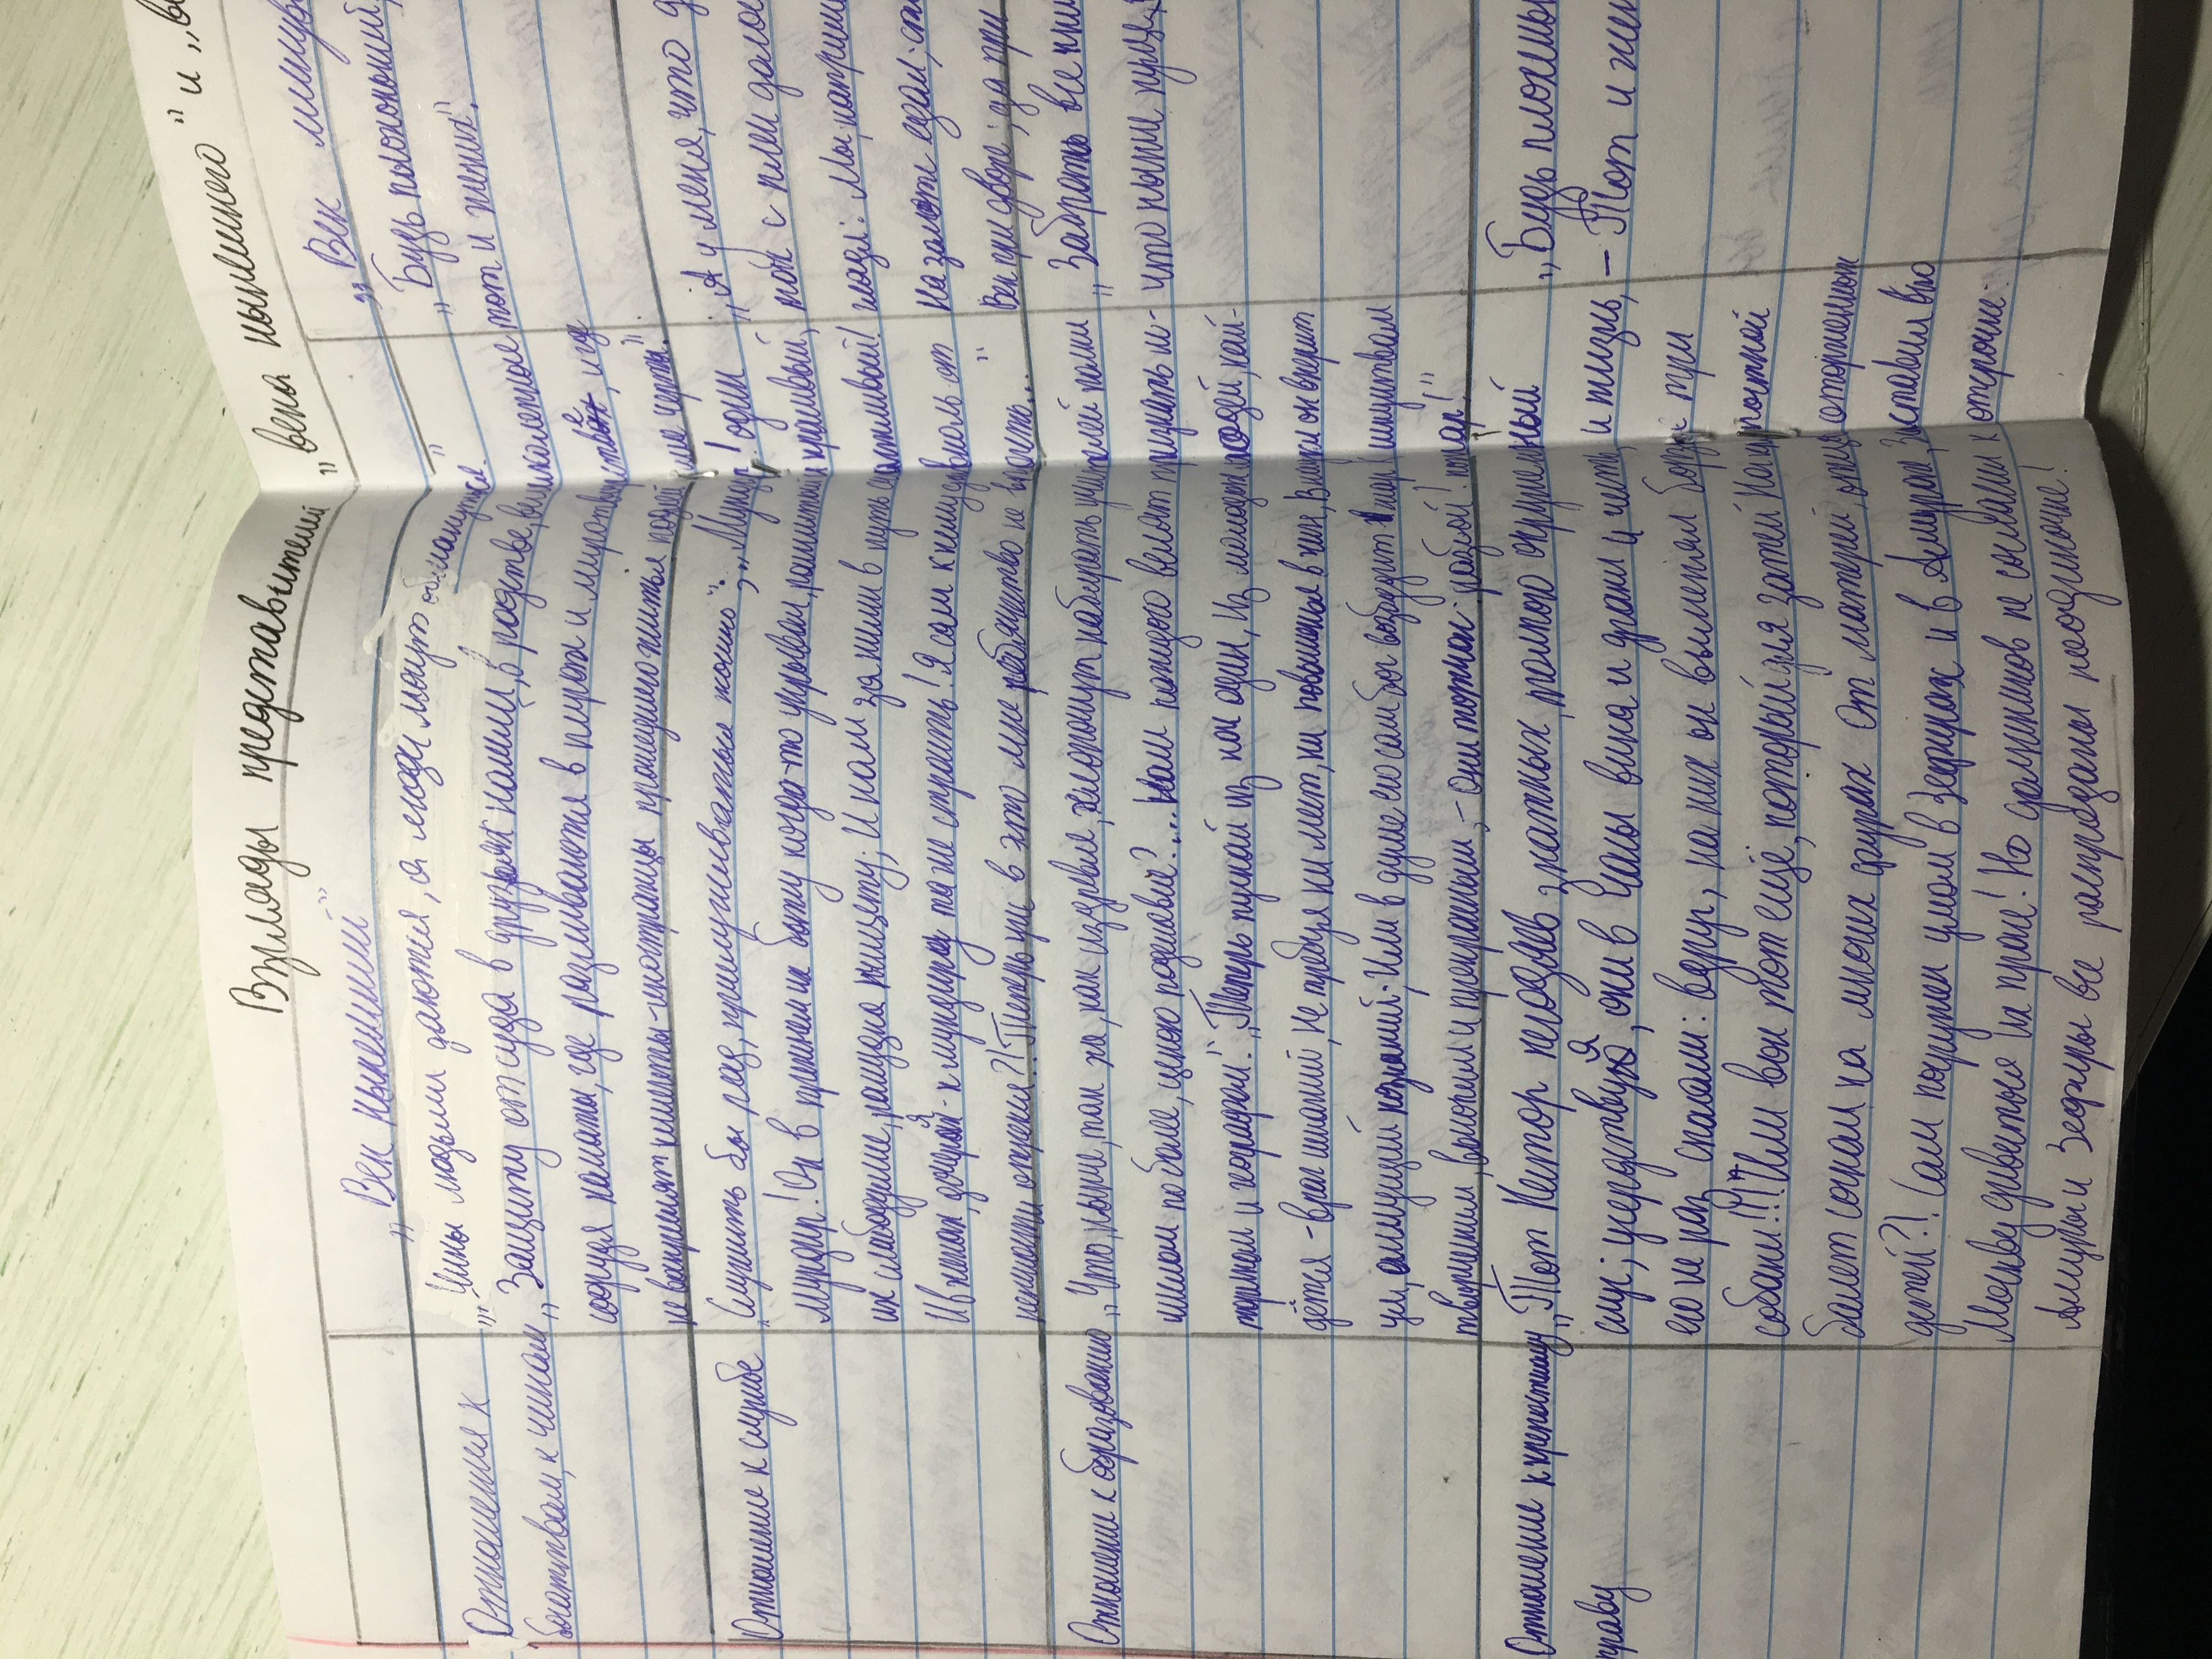 Взгляды представителей „века нынешнего" и „ве
„Век нынешний"
„Век минув
Отношения к
богатствам, к чинам
„Чины людьми даются, а люди могут обмануться."
„Защиту от суда в друзьях нашли, в родстве, великолепные
соорудя палаты, где разливаются в пирах и мотовстве, и где
не воскресят клиенты-иностранцы прошедшего житья подлейшие черты".
„Будь плохонький,
тот и жених".
Отношение к службе
„Служить бы рад, прислуживаться тошно", „Мундир! один
мундир! Он в прежнем быту когда-то укрывал, расшитый и красивый,
их слабодушие, рассудка нищету; И нам за ними в путь счастливый!
И в женах, дочерях - к мундиру та же страсть! Я сам к нему давно ль от
нежности отрекся?! Теперь уж в это мне ребячество не впасть..."
„А у меня, что д
ное с плеч долой
гляди: Мы, наприм
На золоте едал; сто
Век при дворе; да при
Отношение к образованию
„Что, ныне, так же, как издревле, хлопочут набирать учителей полки
числом поболее, ценою подешевле?... Нам каждого велят признать и-
ториком и географом." „Теперь пускай из нас один, Из молодых людей, най-
дется - враг исканий, Не требуя ни мест, ни повышенья в чин, В науки он вперит
ум, алчущий познаний; Или в душе его сам бог возбудит жар к искусствам
творческим, высоким и прекрасным, - они тотчас: разбой! пожар!"
„Забрать все кни
что ныне пуще,
Отношение к крепостному
праву
„Тот Нестор негодяев знатных, толпою окруженный
слуг; усердствуя, они в часы вина и драки и честь, и жизнь,
его не раз спасали: вдруг, на них он выменял борзые три
собаки!!! Или вон тот ещё, который для затей На крепостной
балет согнал на многих фурах От матерей, отцов отторженных
детей?! Сам погружен умом в Зефирах и в Амурах, Заставил всю
Москву дивиться их красе! Но должников не согласил к отсрочке:
Амуры и Зефиры все распроданы поодиночке!
„Будь плохеньк
– Тот и жен